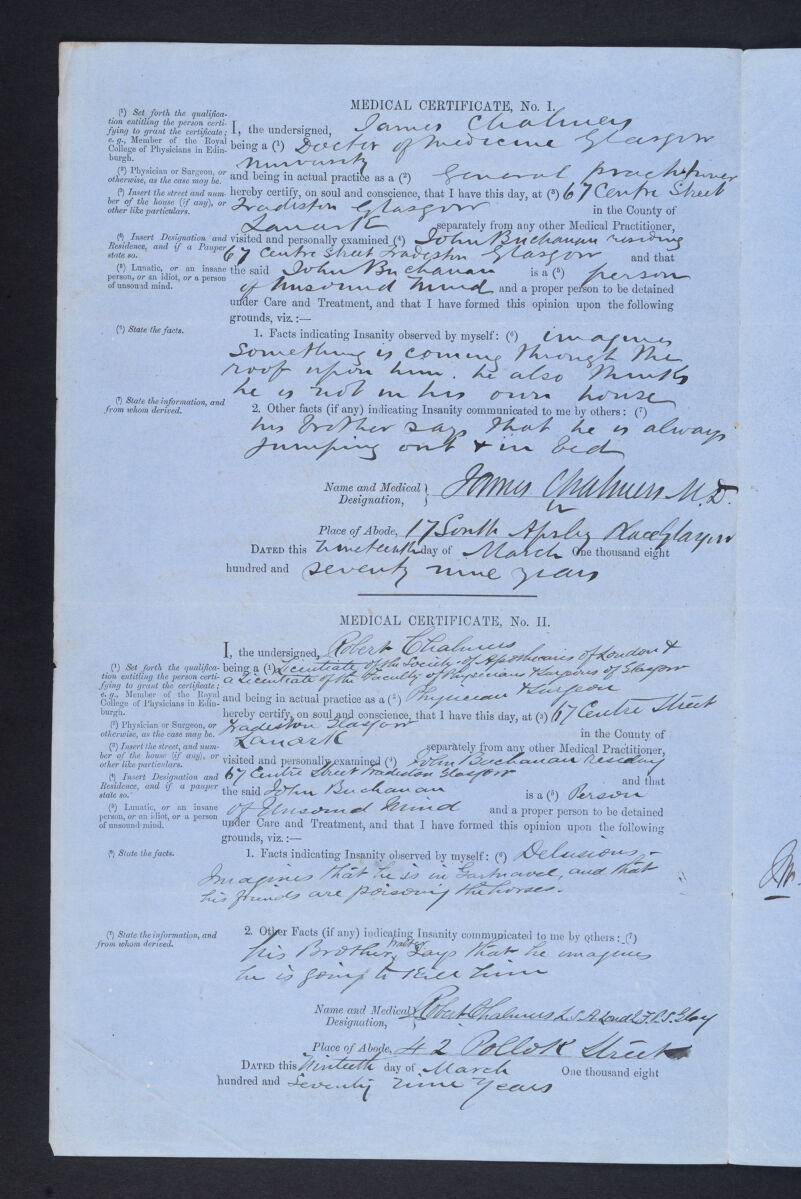 MEDICAL CERTIFICATE, No. I.
(1) Set forth the qualifica-
tion entitling the person certi-
fying to grant the certificate;
e. g., Member of the Royal
College of Physicians in Edin-
burgh.
(2) Physician or Surgeon, or
otherwise, as the case may be.
(3) Insert the street and num-
ber of the house (if any), or
other like particulars.
(4) Insert Designation and
Residence, and if a Pauper
state so.
(5) Lunatic, or an insane
person, or an idiot, or a person
of unsound mind.
(6) State the facts.
(7) State the information, and
from whom derived.
I, the undersigned, James Chalmers
being a (1) Doctor of medicine Glasgow
University
and being in actual practice as a (2) General practitioner
hereby certify, on soul and conscience, that I have this day, at (3) 67 Centre Street
Tradeston Glasgow in the County of
Lanark separately from any other Medical Practitioner,
visited and personally examined (4) John Buchanan residing
67 Centre Street Tradeston Glasgow and that
the said John Buchanan is a (5) person
of unsound mind and a proper person to be detained
under Care and Treatment, and that I have formed this opinion upon the following
grounds, viz.:—
1. Facts indicating Insanity observed by myself: (6) imagines
Something is coming through the
roof upon him. he also thinks
he is not in his own house
2. Other facts (if any) indicating Insanity communicated to me by others: (7)
his brother says that he is always
jumping out & in bed
Name and Medical Designation, James Chalmers M.D.
Place of Abode, 17 South Apsley Place Glasgow
DATED this nineteenth day of March One thousand eight
hundred and seventy nine years
MEDICAL CERTIFICATE, No. II.
(1) Set forth the qualifica-
tion entitling the person certi-
fying to grant the certificate;
e. g., Member of the Royal
College of Physicians in Edin-
burgh.
(2) Physician or Surgeon, or
otherwise, as the case may be.
(3) Insert the street, and num-
ber of the house (if any), or
other like particulars.
(4) Insert Designation and
Residence, and if a pauper
state so.
(5) Lunatic, or an insane
person, or an idiot, or a person
of unsound mind.
(6) State the facts.
(7) State the information, and
from whom derived.
I, the undersigned, Robert Chalmers
being a (1) Licentiate of the Society of Apothecaries of London &
a Licentiate of the Faculty of Physicians & Surgeons of Glasgow
and being in actual practice as a (2) Physician & Surgeon
hereby certify, on soul and conscience, that I have this day, at (3) 67 Centre Street
Tradeston Glasgow in the County of
Lanark separately from any other Medical Practitioner,
visited and personally examined (4) John Buchanan residing
67 Centre Street Tradeston Glasgow and that
the said John Buchanan is a (5) Person
of Unsound Mind and a proper person to be detained
under Care and Treatment, and that I have formed this opinion upon the following
grounds, viz.:—
1. Facts indicating Insanity observed by myself: (6) Delusions,-
Imagines that he is in Gartnavel, and that
his friends are poisoning the horses.
2. Other Facts (if any) indicating Insanity communicated to me by others: (7)
his Brother Walter Says that he imagines
he is going to kill him
Name and Medical Designation, Robert Chalmers L.S.A. Lond L.F.P.S. Glas
Place of Abode, 42 Pollok Street
DATED this Ninteeth day of March One thousand eight
hundred and seventy nine Years